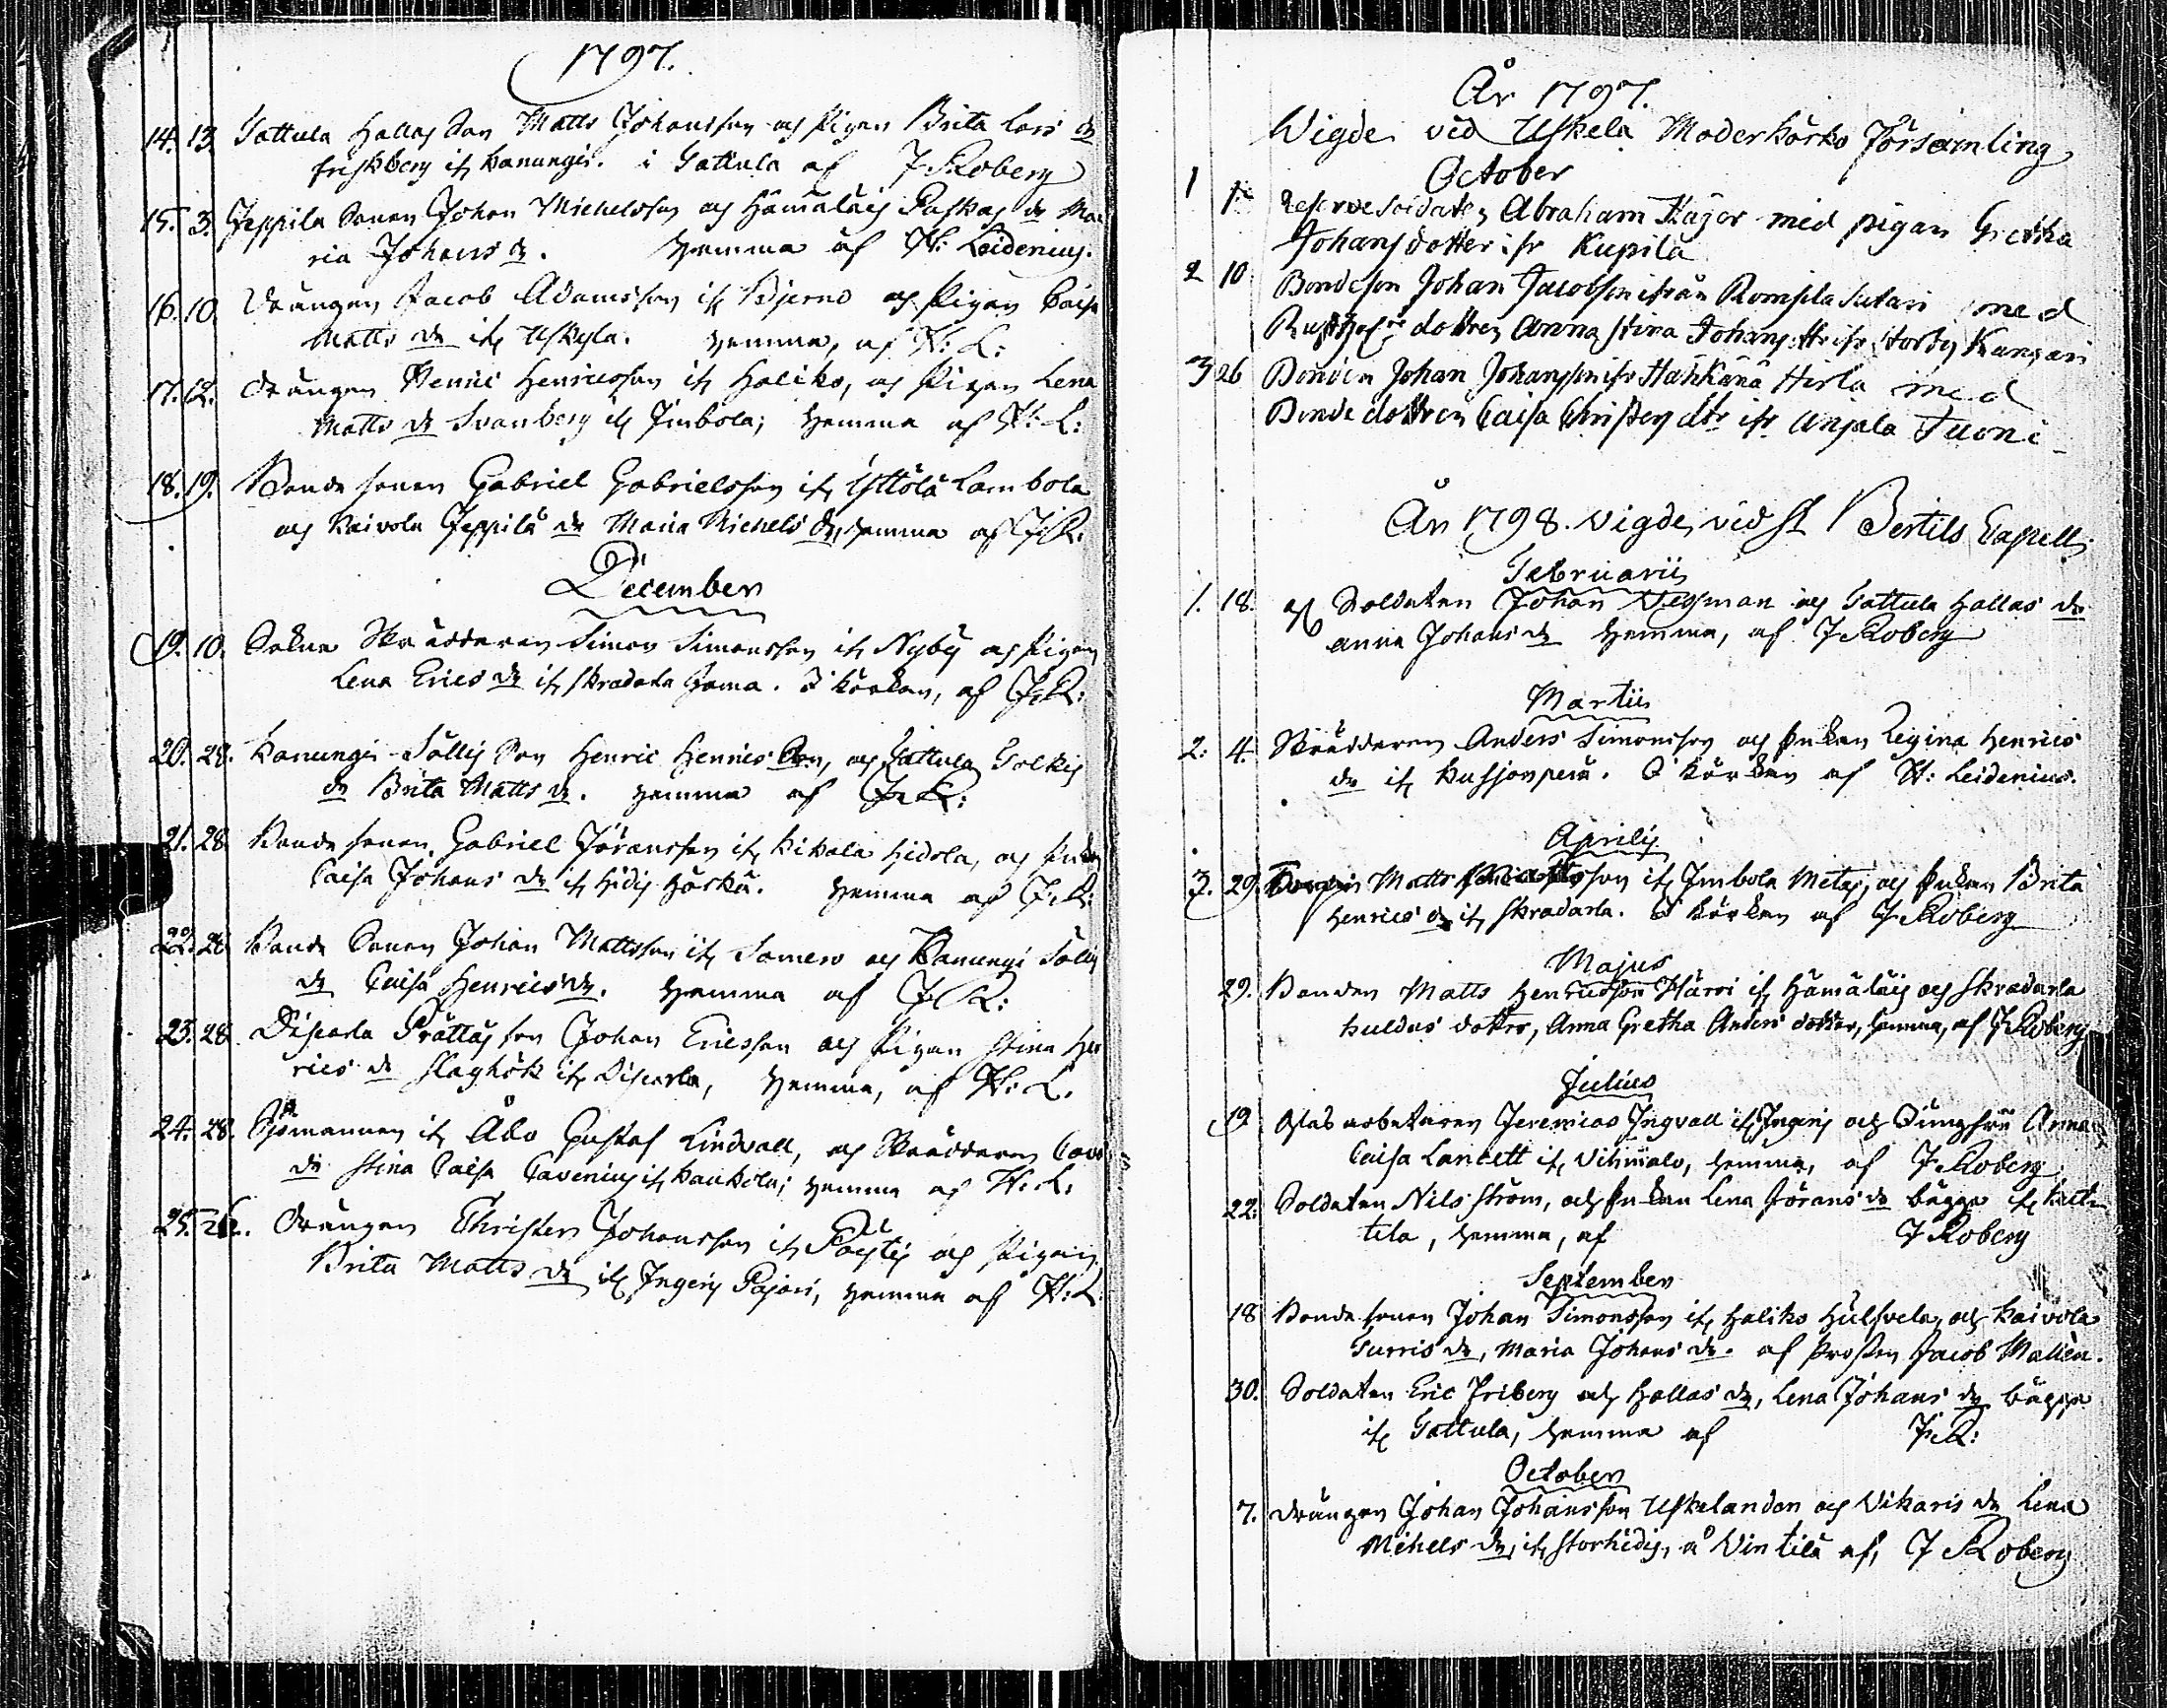 1797.
14. 13. Tattula Hallas Son Matts Johansson och Pigan Brita Lars dr
friskberg ifr Kanungis. i Tattula af J Roberg
15. 3. Jeppila Sonen Johan Michelsson och Hämäläis Paskas dr Ma
ria Johans dr. hemma af H: Leidenius.
16. 10. Drängen Jacob Adamsson ifr Bjerno och Pigan Caisa
Matts dr ifr Uskela. hemma, af H: L:
17. 12. Drängen Henric Henricsson ifr Haliko, och Pigan Lena
Matts dr Svanberg ifr Inbola; hemma af H: L:
18. 19. Bonde sonen Gabriel Gabrielsson ifr Yttölä Lambola
och Kaivola Jeppilä dr Maria Michels dr, hemma af J R.
December
19. 10. Sokne Skräddaren Simon Simonsson ifr Nyby och Pigan
Lena Erics dr ifr Skradarla. I körkan, af J R:
20. 28. Kanungi Sällis Son Henric Henrics Son, och Tattula Tolkis
dr Brita Matts dr. hemma af J R:
21. 28. Bonde sonen Gabriel Jöransson ifr Kikala Hidola, och
Caisa Johans dr ifr Hidis Härkä. hemma af J R:
22. 28. Bonde Sonen Johan Mattsson ifr Somero och Kanungi Sälis
dr Caisa Henrics dr. hemma af J R:
23. 28. Discarla Prättäs son Johan Ericsson och Pigan Stina Hen
rics dr Slaghök ifr Discarla, hemma, af H: L.
24. 28. Sjömannen ifr Åbo Gustaf Lindvall, och Skräddaren
dr Stina Caisa Cavenius ifr Kaukola; hemma af H: L:
25. Drängen Christer Johansson ifr Pöytis och Pigan
Brita Matts dr ifr Ingeris Pajari, hemma af H: L
År 1797.
Wigde vid Uskela Moderkörko Församling
October
1 1. Reserve soldaten Abraham Kägor med pigan Gretha
Johansdotter ifr Kupila
2 10. Bondeson Johan Jacobson ifrån Romsila Sutari med
dottren Anna Stina Johans ifr Kangari
3 26 Bonden Johan Johansson ifr Hähkänä Hirla med
Bonde dottren Caisa Christers dtr ifr Anjala Tuoni
År 1798. Vigde, vid St Bertils Capell
Februarii
1. 18. Soldaten Johan Wessman och Tattula Hallas dr
Anna Johans dr hemma, af J Roberg
Martii
2. 4. Skräddaren Anders Simonsson och Enkan Regina Henrics
dr ifr Kusjonperä. I körkan af H: Leidenius.
Aprilis
3. 29. Matts son ifr Inbola Metäs, och Enkan Brita
Henrics dr ifr Skradarla. I körkan af J Roberg
Majus
29. Bonden Matts Henricsson Härri ifr Hämäläis och Skradarla
Kuldas dotter, Anna Gretha Anders dotter, hemma, af J Roberg
Julius
19 Glas arbetaren Jeremias Ingvall ifr Ingeris och Jungfru Anna
Caisa Lancett ifr Vihiniälo, hemma, af J Roberg
22. Soldaten Nils Ström, och Enkan Lena Jörans dr bägge ifr Katt
tila, hemma, af J Roberg
September
18 Bonde sonen Johan Simonsson ifr Haliko Hulfvela, och Kaivola
Turris dr, Maria Johans dr. af Prosten Jacob Malleen.
30. Soldaten Eric Friberg och Hallas dr, Lena Johans dr, bägge
ifr Tattula, hemma af J R:
October
7. Drängen Johan Johansson Uskelandon och Vikaris dr Lena
Mihels dr, ifr Storhidis, å Vintilä af, J Roberg